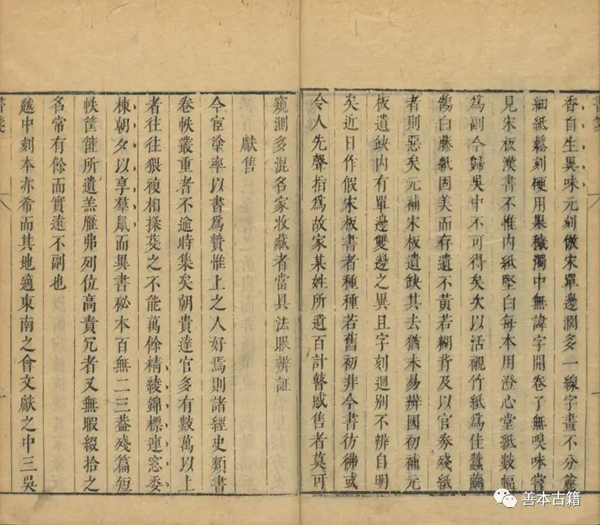 香自生異味元刻倣宋單邊濶多一線字畫不分麄
細紙鬆刻硬用墨穢濁中無諱字開卷了無嗅味嘗
見宋板漢書不惟内紙堅白每本用澄心堂紙數幅
為副今歸吳中不可得矣以活襯竹紙為佳蠶繭
鵠白藤紙固美而存遺不廣若糊背及以官券殘紙
者則惡矣元補宋板遺缺其去猶未易辨國初補元
板遺缺内有單邊雙邊之異且字刻迥别不辨自明
矣近日作假宋板書者種種若舊初非今書彷彿或
令人先聲指為故家某姓所遺百計瞽惑售者莫可
窺測多混名家收藏者當具法眼辨証
獻售
今宦塗率以書為贄惟上之人好焉則諸經史類書
卷帙叢重者不逾時集矣朝貴達官多有數萬以上
者往往猥複相揉芟之不能萬餘精綾錦標連窓委
棟朝夕以享羣鼠而異書秘本百無二三葢殘篇短
帙筐篚所遺羔雁弗列位高貴冗者又無暇綴拾之
名常有餘而實遠不副也
越中刻本亦希而其地適東南之會文獻之中三吳
書箋
書箋
善本古籍